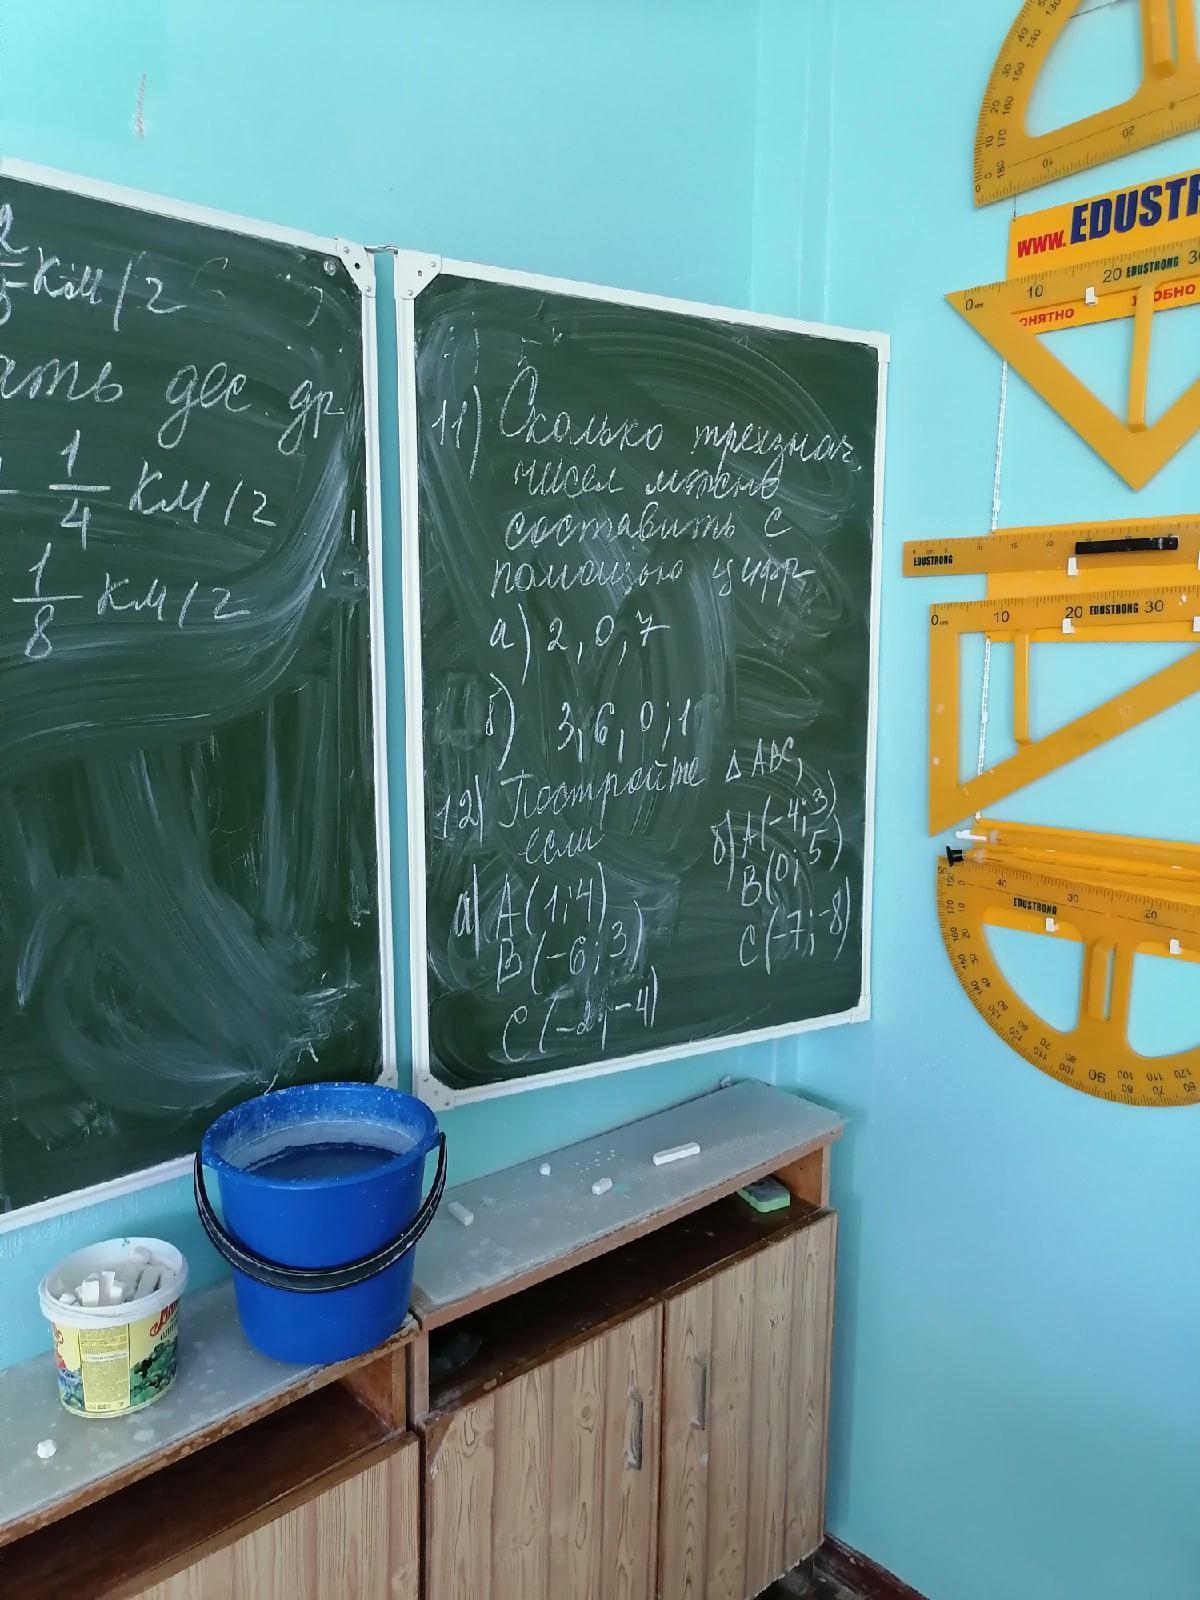 км/ч
ать дес. др
1/4 км/ч
1/8 км/ч
11) Сколько трехзнач.
чисел можно
составить с
помощью цифр
а) 2, 0, 7
б) 3, 6, 0; 1
12) Постройте △ ABC,
если
а) A(1; 4)
B(-6; 3)
C(-2; -4)
б) A(-4; 3)
B(0; 5)
C(-7; -8)
WWW. EDUSTR
20 EDUSTRONG 30
0 cm 10
ОНЯТНО
ОБНО
EDUSTRONG
0 cm 10 20 EDUSTRONG 30
40 30 20
EDUSTRONG